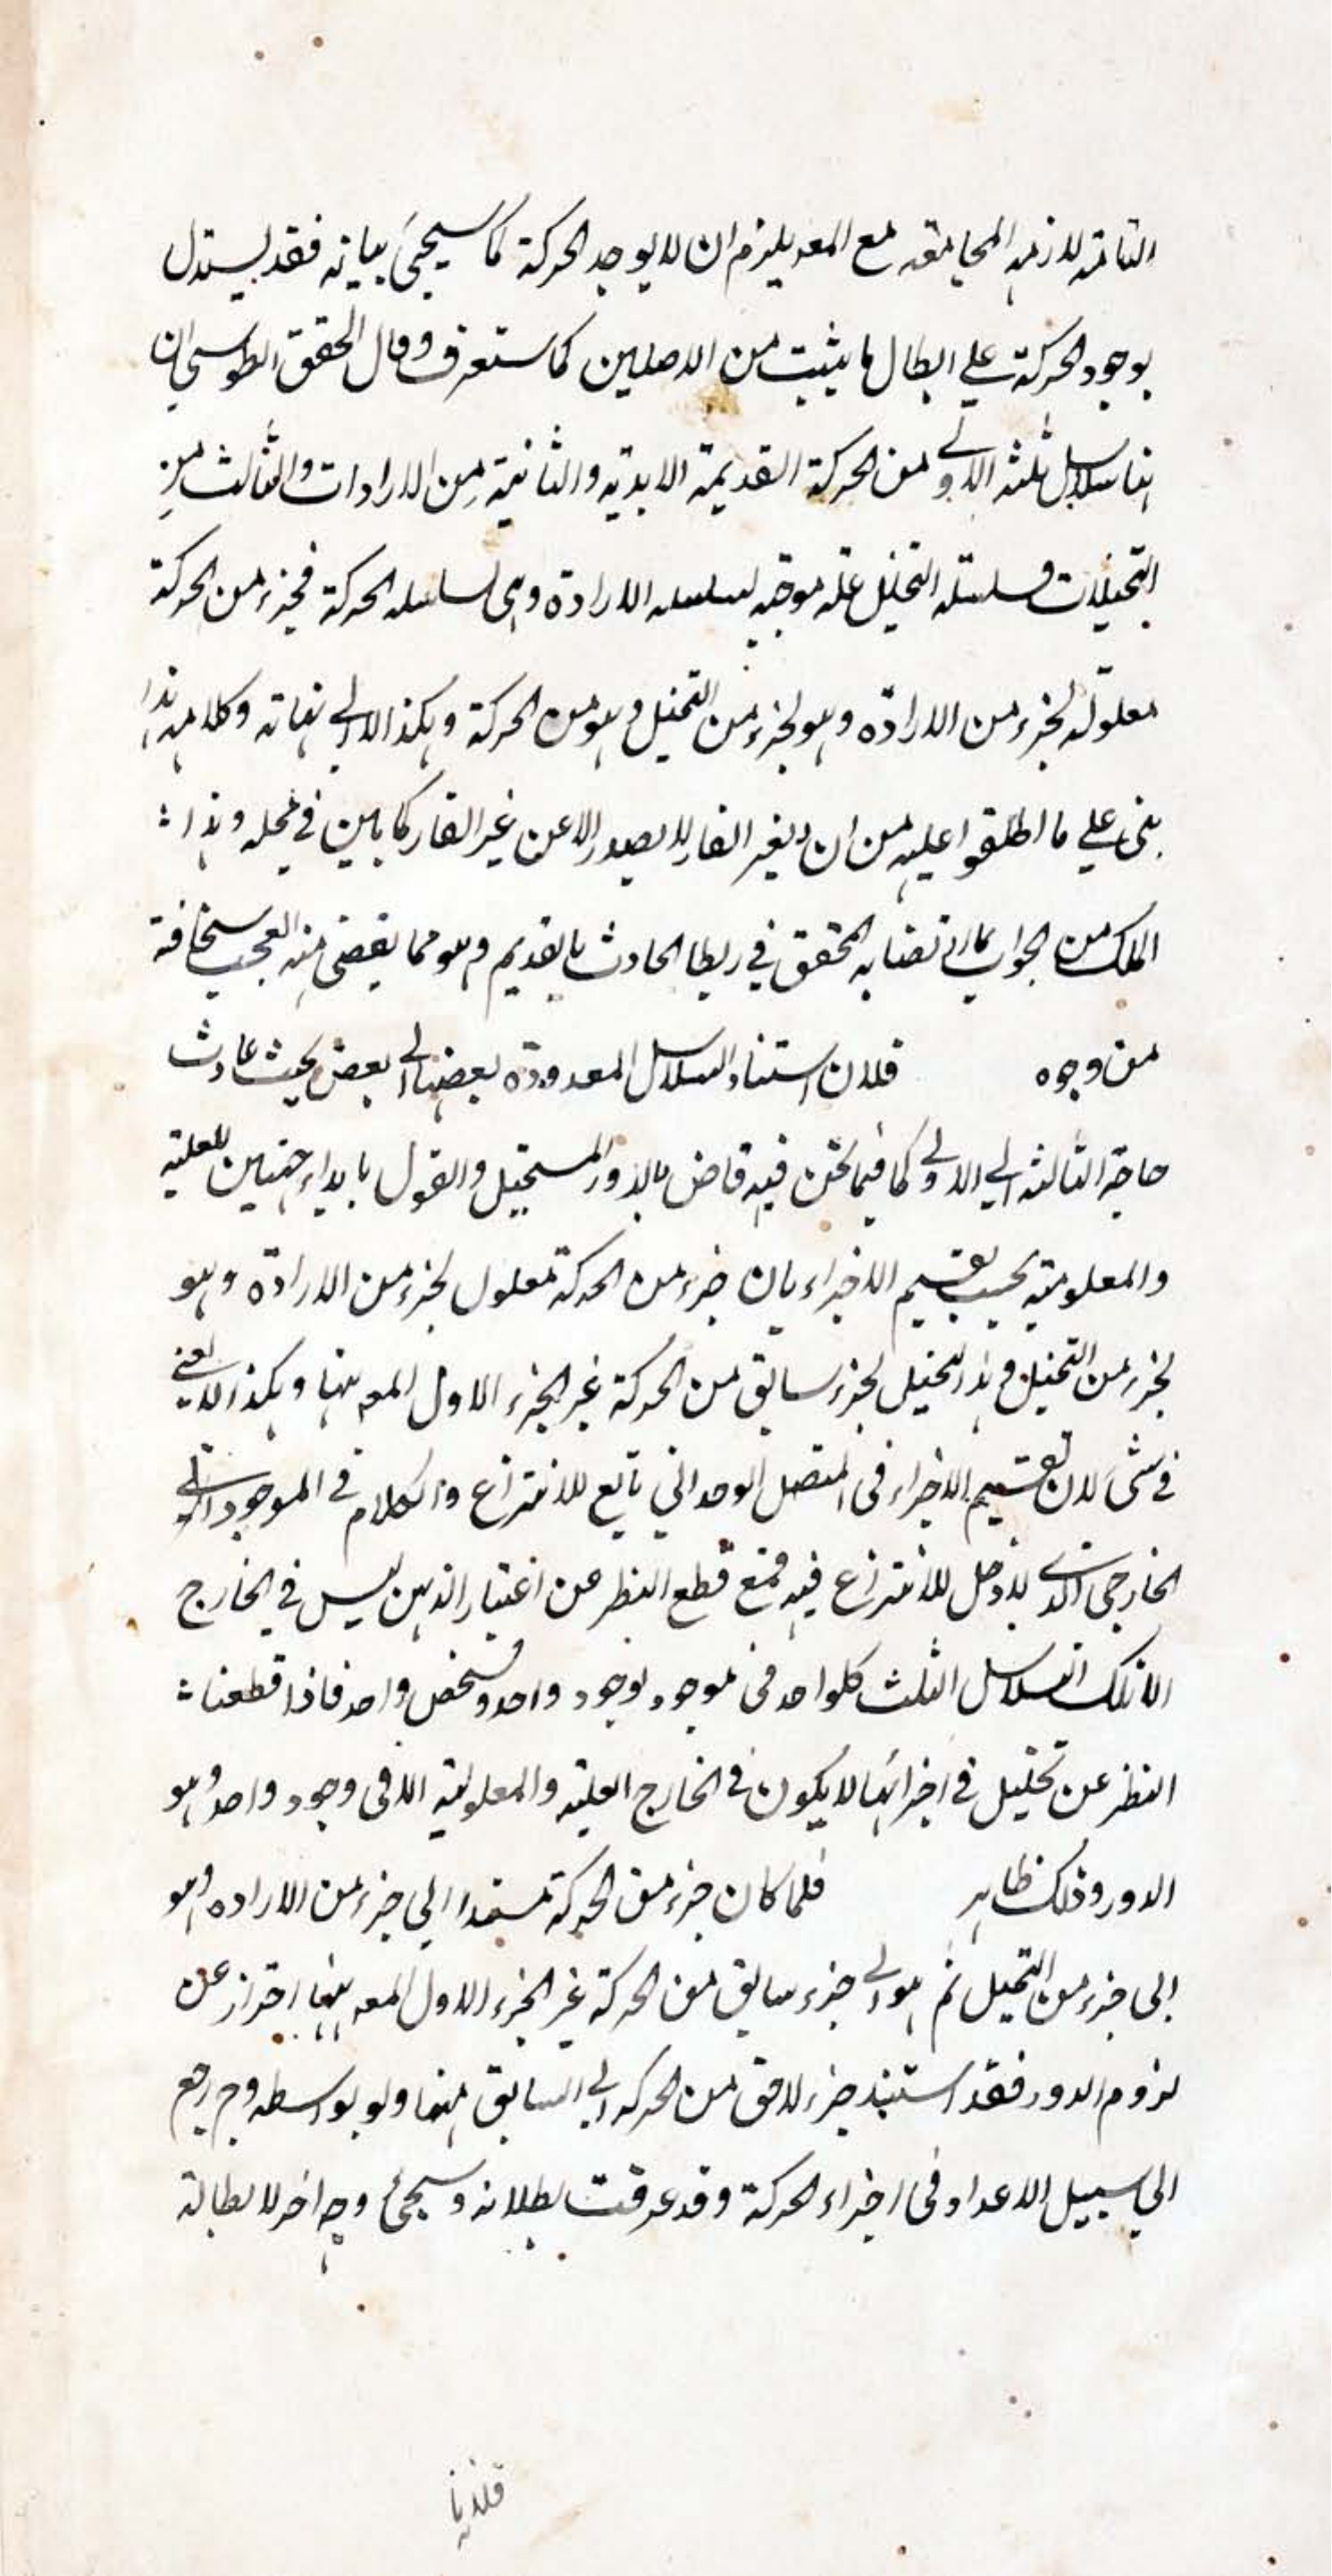 التامة لازمه المجامعة مع المعد يلزم ان لا يوجد الحركة كما سيجئ بيانه فقد يستدل
بوجود الحركة علي ابطال ما يثبت من الاصلين كما ستعرف وقال المحقق الطوسي ان
هنا سلاسل ثلثه الاولي من الحركة القديمة الابدية والثانية من الارادات والثالث من
التخيلات وسلسلة التخيل علة موجبه لسلسله الارادة وهي لسلسله الحركة فجزء من الحركة
معلول لجزء من الارادة وهو لجزء من التخيل وهو من الحركة وهكذا الا الي نهاته وكلامه هذا
بني علي ما اطلقوا عليه من ان الغير القار لا يصدر الا عن غير القار كما بين في محله وهذا
الملك من الجواب مما ارتضا به المحقق في ربط الحادث بالقديم وهو مما يقضي منه العجب سخافة
من وجوه فلان استناد السلاسل المعدودة بعضها الي بعض بحيث عادت
حاجة الثالثه الي الاولي كما فيما نحن فيه قاض بالدور المستحيل والقول بابداء جهتين للعلية
والمعلومية بحسب تقسيم الاجزاء بان جزء من الحركة معلول لجزء من الارادة وهو
لجزء من التخيل وهذا التخيل لجزء سابق من الحركة غير الجزء الاول المعد بينها وهكذا لا يغني
في شئ لان تقسيم الاجزاء في المتصل الوحداني تابع للانتزاع والكلام في الموجود
الخارجي الذي لا دخل للانتزاع فيه فمع قطع النظر عن اعتبار الذهن ليس في الخارج
الا تلك السلاسل الثلث كلواحد في موجود بوجود واحد وشخص واحد فاذا قطعنا
النظر عن تحليل في اجزائها لا يكون في الخارج العلية والمعلولية الا في وجود واحد وهو
الدور وذلك ظاهر فلما كان جزء من الحركة مستندا الي جزء من الاراده وهو
الي جزء من التخيل ثم هو الي جزء سابق من الحركة غير الجزء الاول المعد بينها احتراز عن
لزوم الدور فقد استند جزء لاحق من الحركه الي السابق منها ولو بواسطه وح رجع
الي سبيل الاعداد في اجزاء الحركة وقد عرفت بطلانه وسيجئ وجه اخر لابطاله